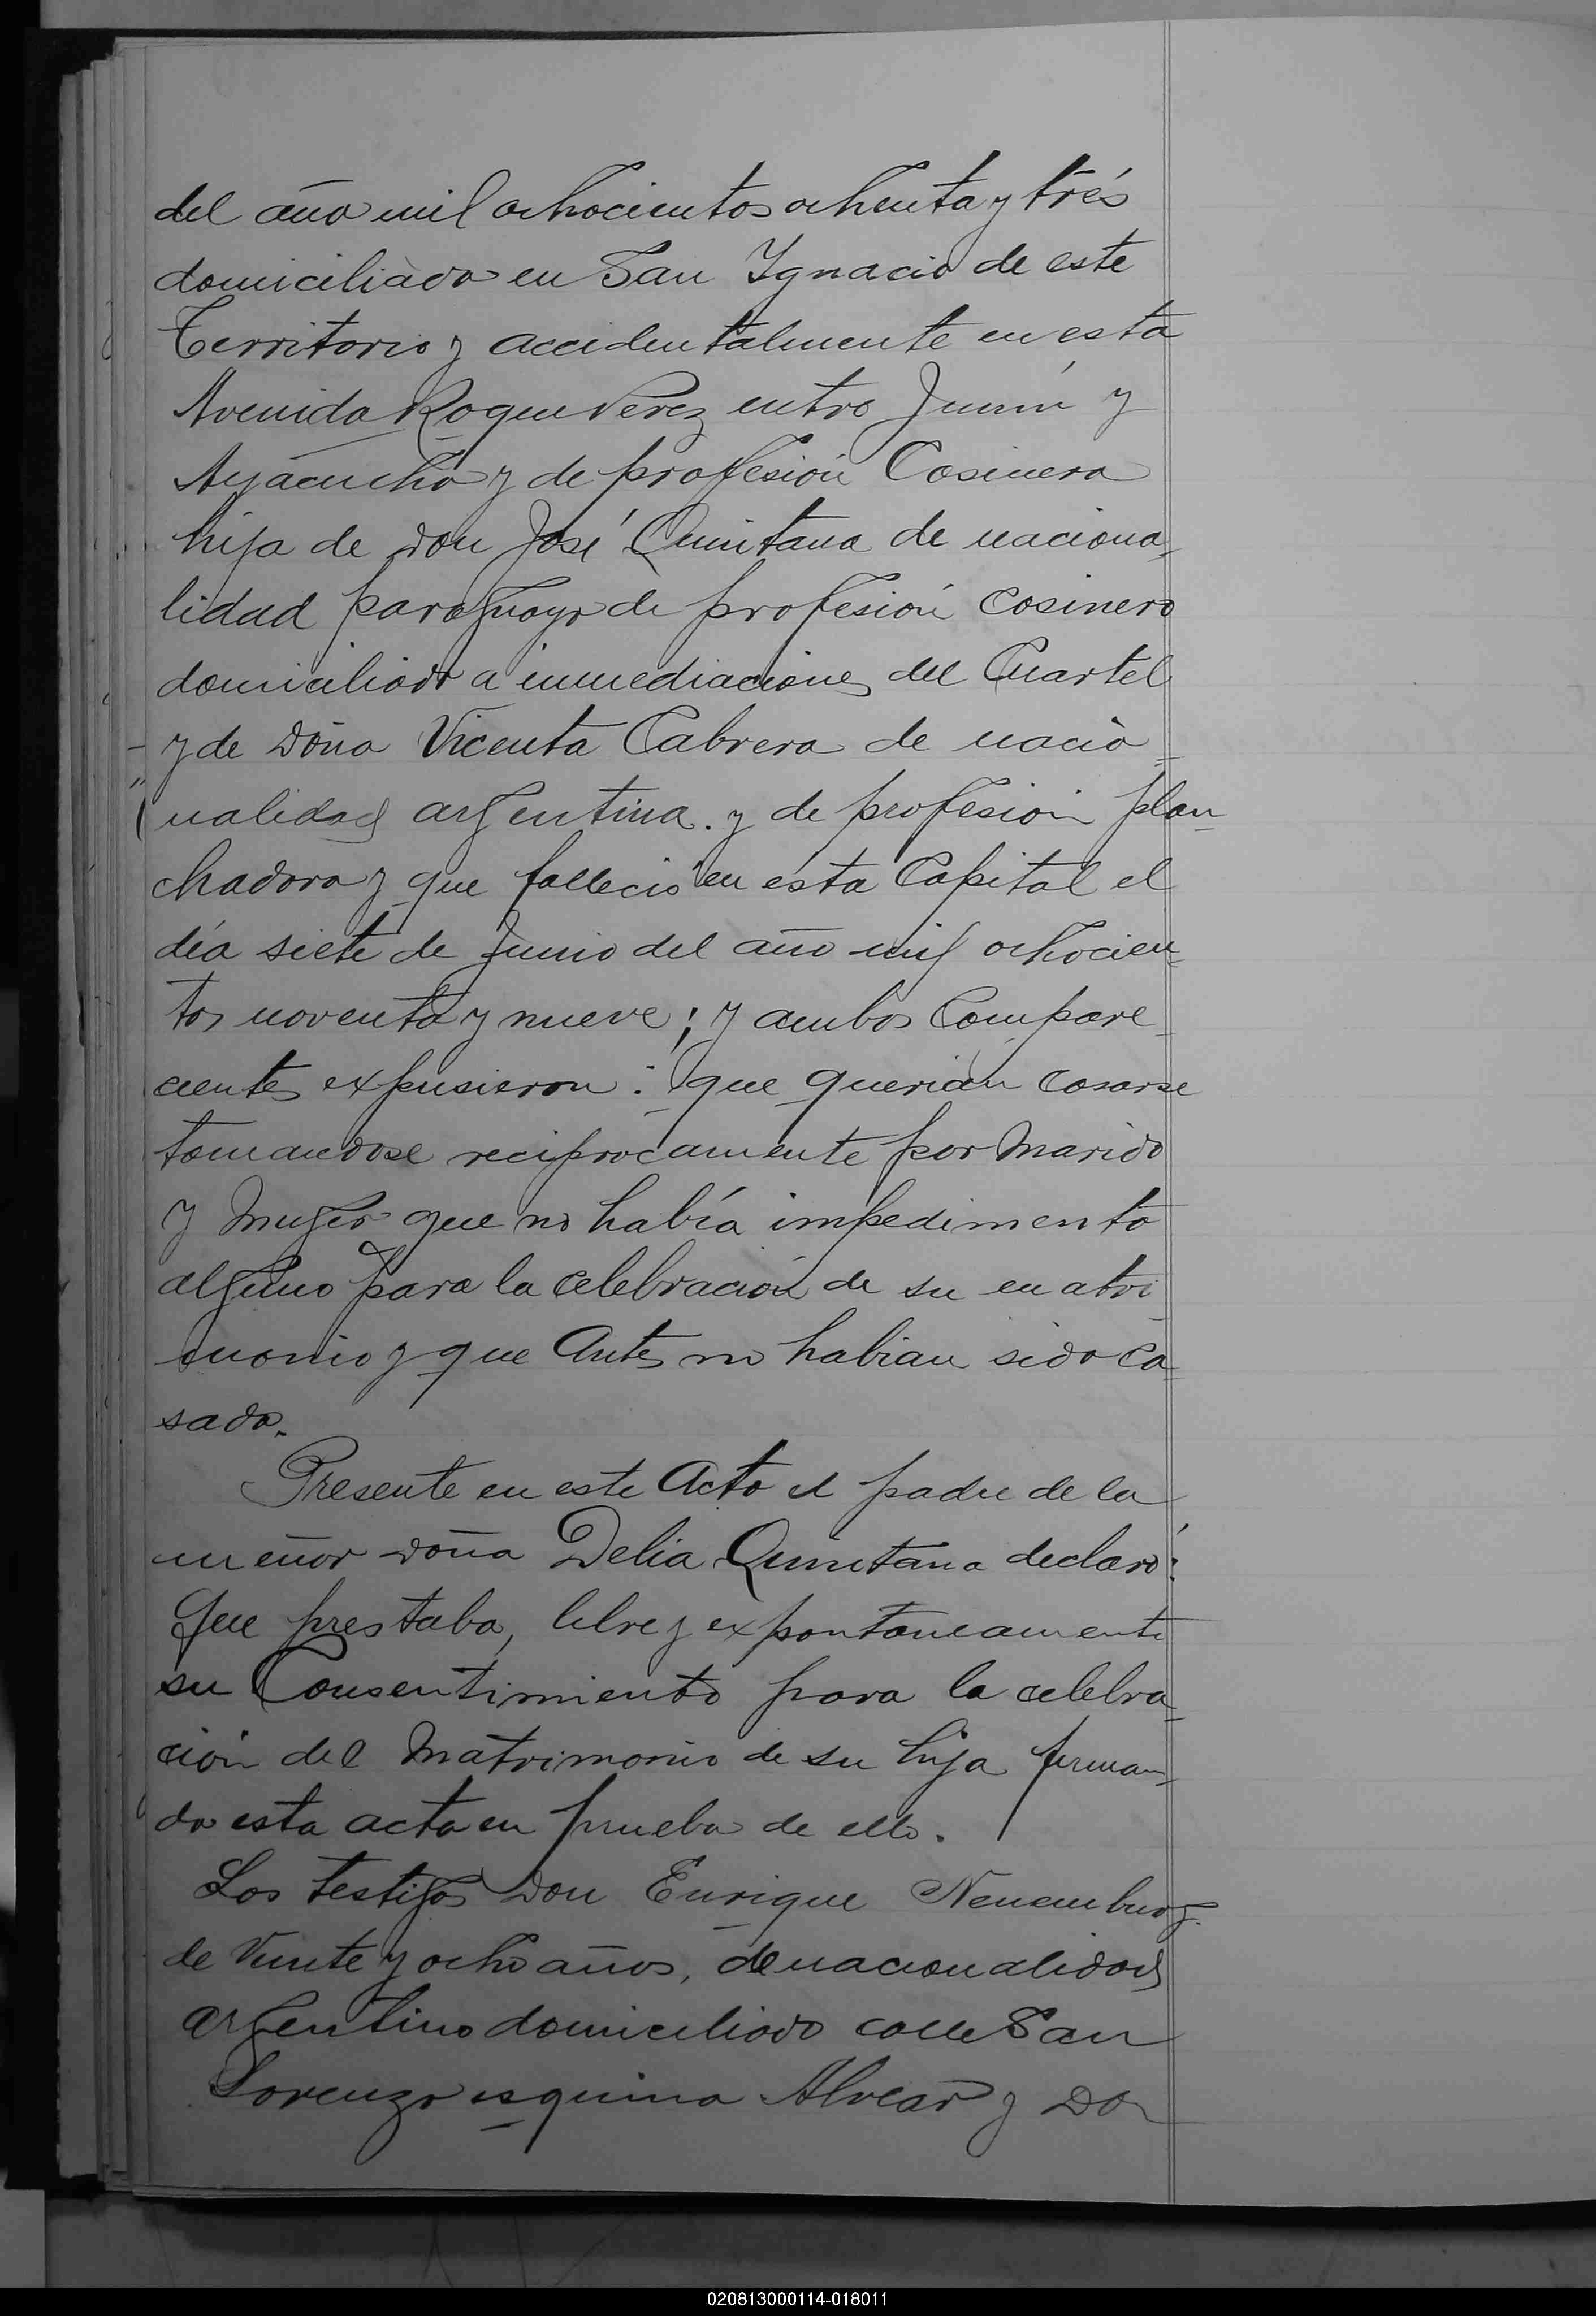 del año mil ochocientos ochenta y trés
domiciliado en San Ygnacio de este
Territorio y accidentalmente en esta
Avenida Roque Perez entre Junín y
Ayacucho y de profesión Cosinera
hija de don José Quintana de naciona-
lidad paraguayo de profesión cosinero
domiciliado a inmediaciones del Cuartel
y de doña Vicenta Cabrera de nacio-
nalidad argentina. y de profesión plan-
chadora y que falleció en esta Capital el
día siete de Junio del año mil ochocien-
tos noventa y nueve; y ambos Compare-
cientes expusieron: que querían casarse
tomandose reciprocamente por Marido
y Muger que no había impedimento
alguno para la celebración de su matri-
monio y que Antes no habian sido ca-
sado.
Presente en este Acto el padre de la
menor doña Delia Quintana declaró:
Que prestaba, libre y expontaneamente
su Consentimiento para la celebra-
ción del Matrimonio de su hija firman-
do esta acta en prueba de ello.
Los testigos Don Enrique Nenemburg.
de Veinte y ocho años, de nacionalidad
argentino domiciliado calle San
Lorenzo esquina Alvear y Don
020813000114-018011